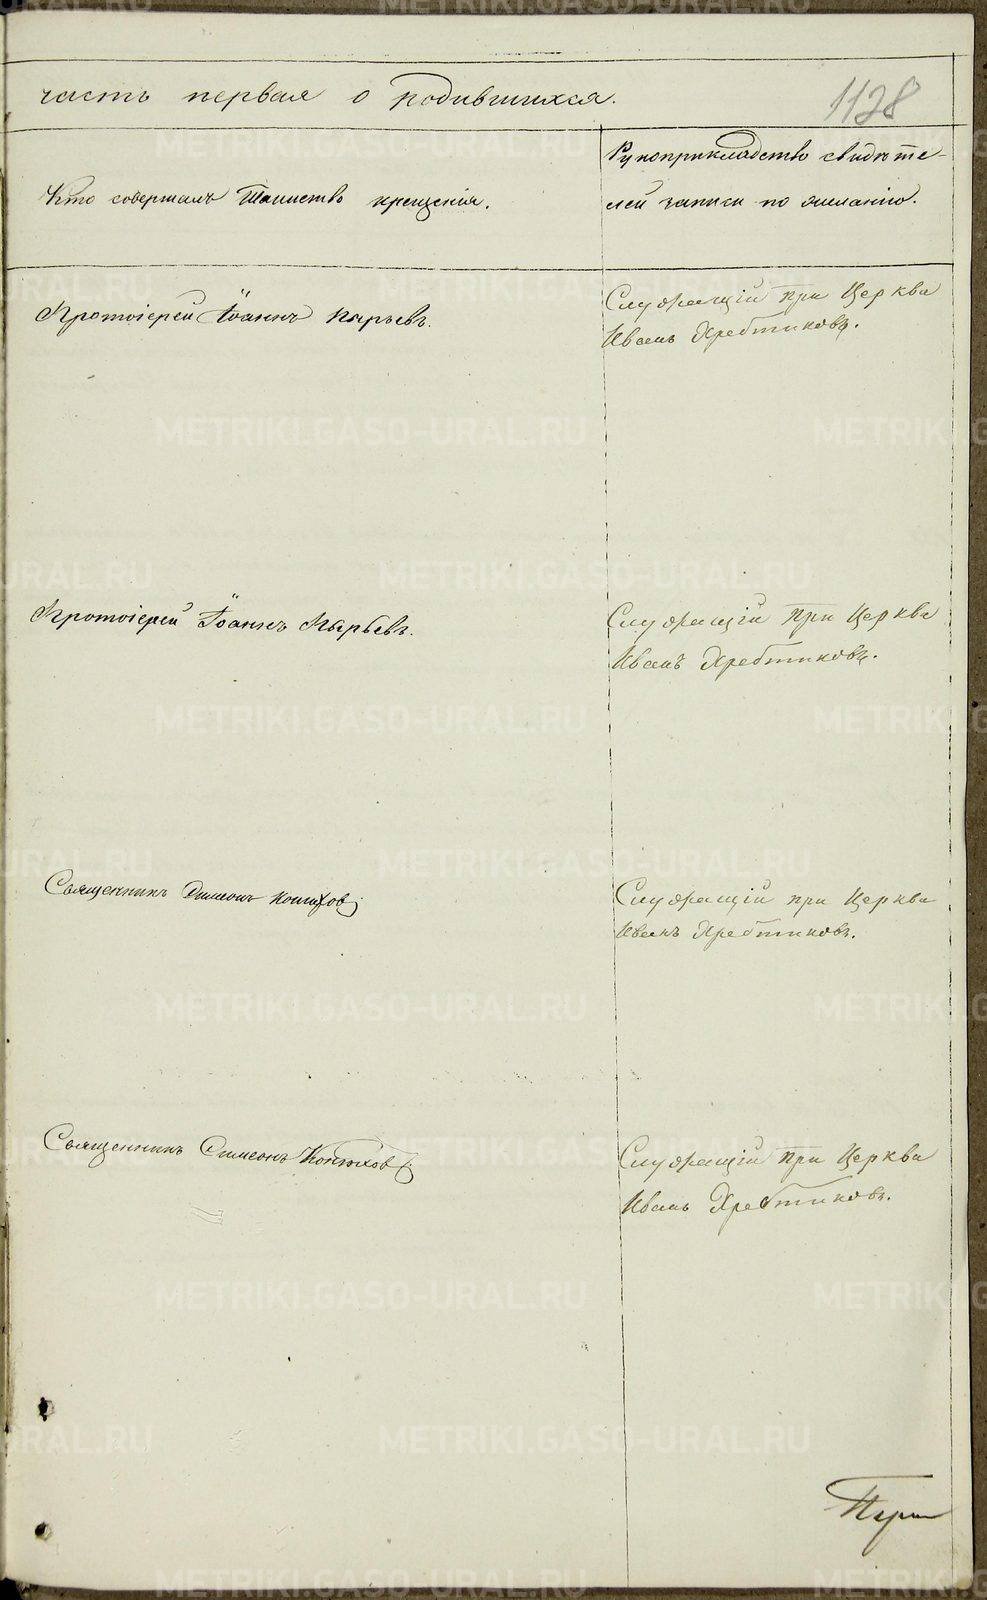 часть первая о родившихся.
1128
Кто совершалъ таинство крещенія.
Рукоприкладство свидѣте-
лей записи по желанію.
Протоіерей Іоаннъ Пырьевъ.
Служащій при Церкви
Иванъ Хребтиковъ.
Протоіерей Іоаннъ Пырьевъ.
Служащій при Церкви
Иванъ Хребтиковъ.
Священникъ Симеонъ Конюхов
Служащій при Церкви
Иванъ Хребтиковъ.
Священникъ Симеонъ Конюхов
Служащій при Церкви
Иванъ Хребтиковъ.
METRIKI.GASO-URAL.RU